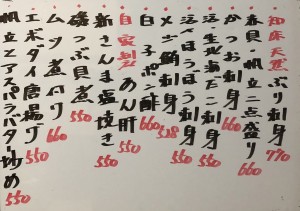 知床天然ぶり刺身 770
春貝・帆立二点盛り
かつお刺身 660
活〆生北海だこ刺身 550
活〆ほうぼう刺身 550
メジ鮪刺身 538
白子ポン酢 660
自家製あん肝 550
新さんま塩焼き
磯つぶ貝煮 550
ムツ煮付 660
エボダイ唐揚げ 550
帆立とアスパラバター炒め 550